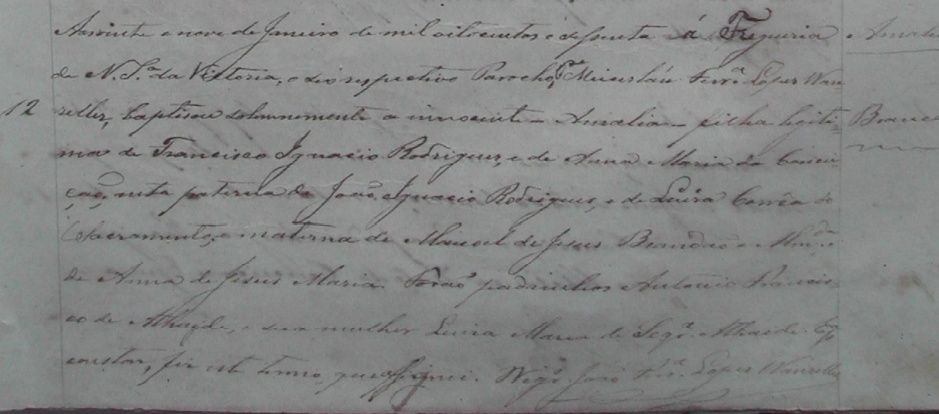 Aos vinte e nove de Janeiro de mil oitocentos e sessenta á Freguesia Amalia
de N. Sra. da Victoria, o seu respectivo Parocho Pe. Miceslau Ferra. Lopes Wan
12 zeller, baptisou solemnemente a innocente - Auralia - filha legiti Branca
ma de Francisco Ignacio Rodrigues, e de Anna Maria da Concei
ção, neta paterna de João Ignacio Rodrigues, e de Luiza Corrêa do
Sacramento, e materna de Manoel de Jesus
de Anna de Jesus Maria. Forão padrinhos Antonio Francis
co de Athayde, e sua mulher Luiza Maria de Athaide. E pa.
constar, fiz este termo, que assignei. Vigro. José Ferra. Lopes Wanzeller